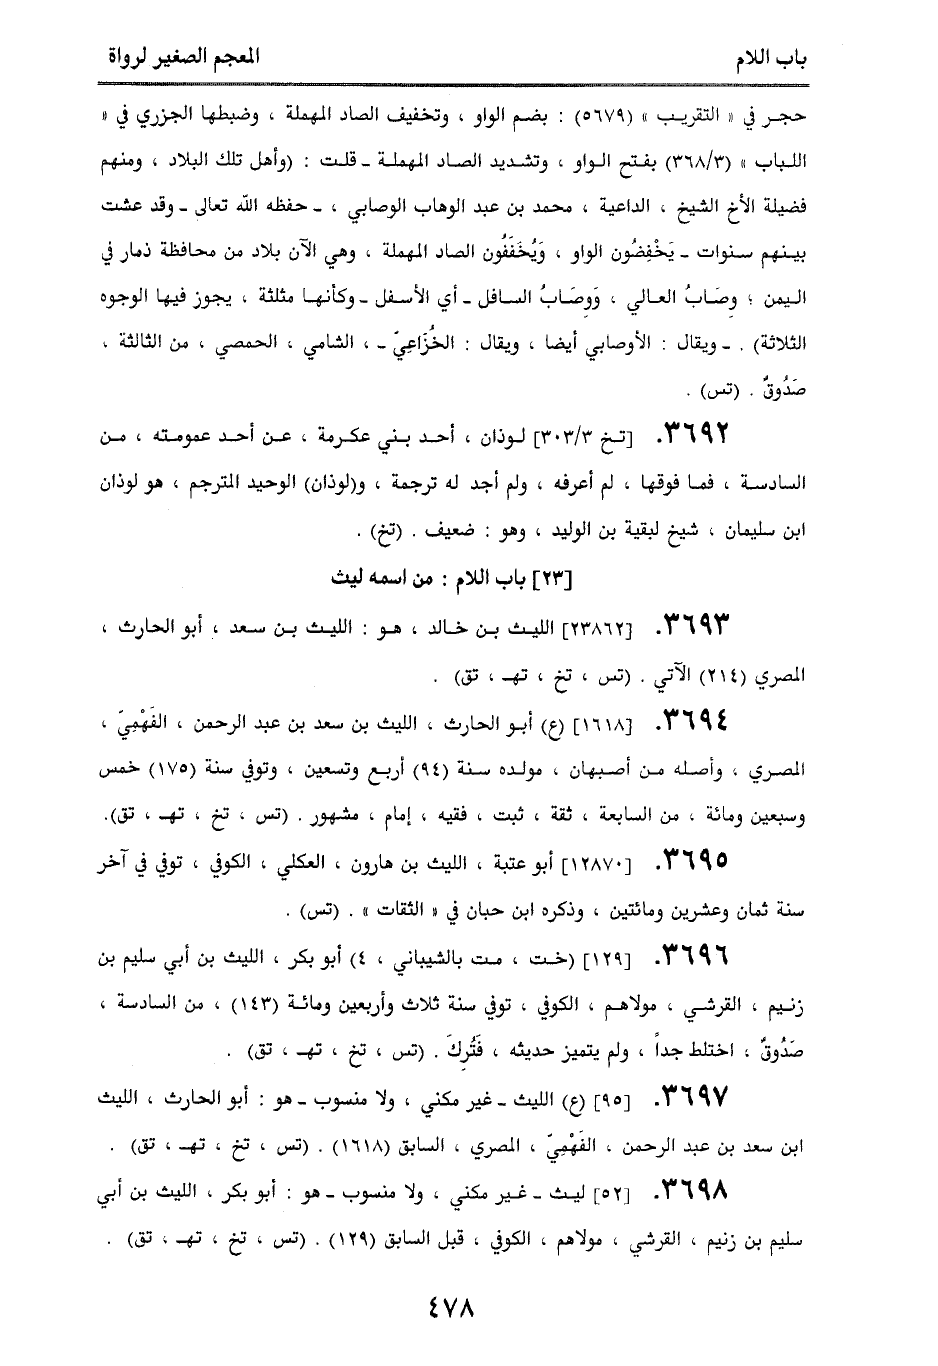 باب اللام
المعجم الصغير لرواة
حجر في « التقريب » (٥٦٧٩) : بضم الواو ، وتخفيف الصاد المهملة ، وضبطها الجزري في «
اللباب » (٣٦٨/٣) بفتح الواو ، وتشديد الصاد المهملة ـ قلت : (وأهل تلك البلاد ، ومنهم
فضيلة الأخ الشيخ ، الداعية ، محمد بن عبد الوهاب الوصابي ، ـ حفظه الله تعالى ـ وقد عشت
بينهم سنوات ـ يَخْفِضُون الواو ، وَيُخَفِّفُون الصاد المهملة ، وهي الآن بلاد من محافظة ذمار في
اليمن ؛ وِصَابُ العالي ، وَوِصَابُ السافل ـ أي الأسفل ـ وكأنها مثلثة ، يجوز فيها الوجوه
الثلاثة) . ـ ويقال : الأوصابي أيضا ، ويقال : الخُزَاعِيّ ـ ، الشامي ، الحمصي ، من الثالثة ،
صَدُوقٌ . (تس) .
٣٦٩٢. [تخ ٣٠٣/٣] لوذان ، أحد بني عكرمة ، عن أحد عمومته ، من
السادسة ، فما فوقها ، لم أعرفه ، ولم أجد له ترجمة ، و(لوذان) الوحيد المترجم ، هو لوذان
ابن سليمان ، شيخ لبقية بن الوليد ، وهو : ضعيف . (تخ) .
[٢٣] باب اللام : من اسمه ليث
٣٦٩٣. [٢٣٨٦٢] الليث بن خالد ، هو : الليث بن سعد ، أبو الحارث ،
المصري (٢١٤) الآتي . (تس ، تخ ، تهـ ، تق) .
٣٦٩٤. [١٦١٨] (ع) أبو الحارث ، الليث بن سعد بن عبد الرحمن ، الفَهْمِيّ ،
المصري ، وأصله من أصبهان ، مولده سنة (٩٤) أربع وتسعين ، وتوفي سنة (١٧٥) خمس
وسبعين ومائة ، من السابعة ، ثقة ، ثبت ، فقيه ، إمام ، مشهور . (تس ، تخ ، تهـ ، تق).
٣٦٩٥. [١٢٨٧٠] أبو عتبة ، الليث بن هارون ، العكلي ، الكوفي ، توفي في آخر
سنة ثمان وعشرين ومائتين ، وذكره ابن حبان في « الثقات » . (تس) .
٣٦٩٦. [١٢٩] (خت ، مت بالشيباني ، ٤) أبو بكر ، الليث بن أبي سليم بن
زنيم ، القرشي ، مولاهم ، الكوفي ، توفي سنة ثلاث وأربعين ومائة (١٤٣) ، من السادسة ،
صَدُوقٌ ، اختلط جداً ، ولم يتميز حديثه ، فَتُرِكَ . (تس ، تخ ، تهـ ، تق) .
٣٦٩٧. [٩٥] (ع) الليث ـ غير مكني ، ولا منسوب ـ هو : أبو الحارث ، الليث
ابن سعد بن عبد الرحمن ، الفَهْمِيّ ، المصري ، السابق (١٦١٨) . (تس ، تخ ، تهـ ، تق) .
٣٦٩٨. [٥٢] ليث ـ غير مكني ، ولا منسوب ـ هو : أبو بكر ، الليث بن أبي
سليم بن زنيم ، القرشي ، مولاهم ، الكوفي ، قبل السابق (١٢٩) . (تس ، تخ ، تهـ ، تق) .
٤٧٨